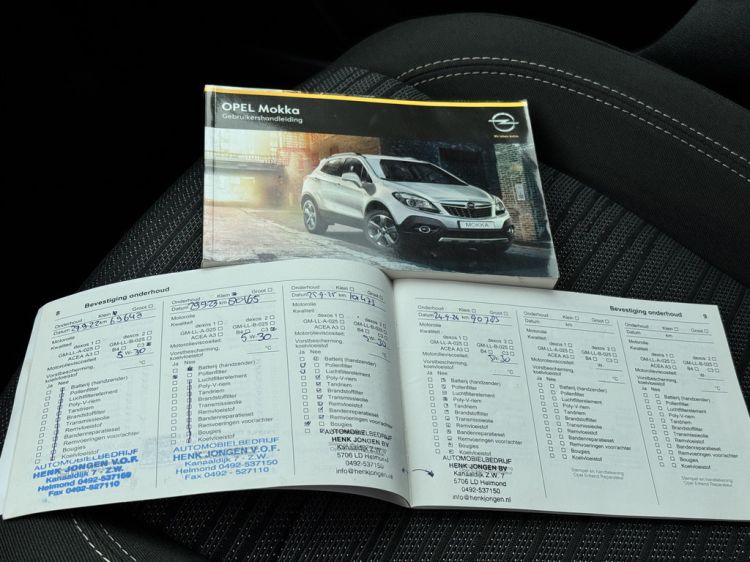 OPEL Mokka
Gebruikershandleiding
Wir leben Autos
MOKKA
8 Bevestiging onderhoud
Onderhoud Klein Groot
Datum km 63643
Motorolie
Kwaliteit
dexos 1 dexos 2
GM-LL-A-025 GM-LL-B-025
ACEA A3 B4 C3
Motorolieviscositeit:
5 W-30
Vorstbescherming,
koelvloeistof °C
Ja Nee
Batterij (handzender)
Pollenfilter
Luchtfilterelement
Poly-V-riem
Tandriem
Brandstoffilter
Transmissieolie
Remvloeistof
Bandenreparatieset
Remvoeringen voor/achter
Bougies
Koelvloeistof
AUTOMOBIELBEDRIJF
HENK JONGEN V.O.F.
Kanaaldijk 7 - Z.W.
Helmond 0492-537150
Fax 0492-527110
Onderhoud Klein Groot
Datum km
Motorolie
Kwaliteit
dexos 1 dexos 2
GM-LL-A-025 GM-LL-B-025
ACEA A3 B4 C3
Motorolieviscositeit:
5 W-30
Vorstbescherming,
koelvloeistof °C
Ja Nee
Batterij (handzender)
Pollenfilter
Luchtfilterelement
Poly-V-riem
Tandriem
Brandstoffilter
Transmissieolie
Remvloeistof
Bandenreparatieset
Remvoeringen voor/achter
Bougies
Koelvloeistof
AUTOMOBIELBEDRIJF
HENK JONGEN V.O.F.
Kanaaldijk 7 - Z.W.
Helmond 0492-537150
Fax 0492-527110
Onderhoud Klein Groot
Datum km
Motorolie
Kwaliteit
dexos 1 dexos 2
GM-LL-A-025 GM-LL-B-025
ACEA A3 B4 C3
Motorolieviscositeit:
5 W-30
Vorstbescherming,
koelvloeistof °C
Ja Nee
Batterij (handzender)
Pollenfilter
Luchtfilterelement
Poly-V-riem
Tandriem
Brandstoffilter
Transmissieolie
Remvloeistof
Bandenreparatieset
Remvoeringen voor/achter
Bougies
AUTOMOBIELBEDRIJF
HENK JONGEN BV
Kanaaldijk Z.W. 7
5706 LD Helmond
0492-537150
info@henkjongen.nl
Bevestiging onderhoud 9
Onderhoud Klein Groot
Datum 24-9-24 km 90785
Motorolie
Kwaliteit
dexos 1 dexos 2
GM-LL-A-025 GM-LL-B-025
ACEA A3 B4 C3
Motorolieviscositeit:
5 W-30
Vorstbescherming,
koelvloeistof °C
Ja Nee
Batterij (handzender)
Pollenfilter
Luchtfilterelement
Poly-V-riem
Tandriem
Brandstoffilter
Transmissieolie
Remvloeistof
Bandenreparatieset
Remvoeringen voor/achter
Bougies
Koelvloeistof
AUTOMOBIELBEDRIJF
HENK JONGEN BV
Kanaaldijk Z.W. 7
5706 LD Helmond
0492-537150
info@henkjongen.nl
Onderhoud Klein Groot
Datum km
Motorolie
Kwaliteit
dexos 1 dexos 2
GM-LL-A-025 GM-LL-B-025
ACEA A3 B4 C3
Motorolieviscositeit:
W
Vorstbescherming,
koelvloeistof °C
Ja Nee
Batterij (handzender)
Pollenfilter
Luchtfilterelement
Poly-V-riem
Tandriem
Brandstoffilter
Transmissieolie
Remvloeistof
Bandenreparatieset
Remvoeringen voor/achter
Bougies
Koelvloeistof
Stempel en handtekening
Opel Erkend Reparateur
Onderhoud Klein Groot
Datum km
Motorolie
Kwaliteit
dexos 1 dexos 2
GM-LL-A-025 GM-LL-B-025
ACEA A3 B4 C3
Motorolieviscositeit:
W
Vorstbescherming,
koelvloeistof °C
Ja Nee
Batterij (handzender)
Pollenfilter
Luchtfilterelement
Poly-V-riem
Tandriem
Brandstoffilter
Transmissieolie
Remvloeistof
Bandenreparatieset
Remvoeringen voor/achter
Bougies
Koelvloeistof
Stempel en handtekening
Opel Erkend Reparateur